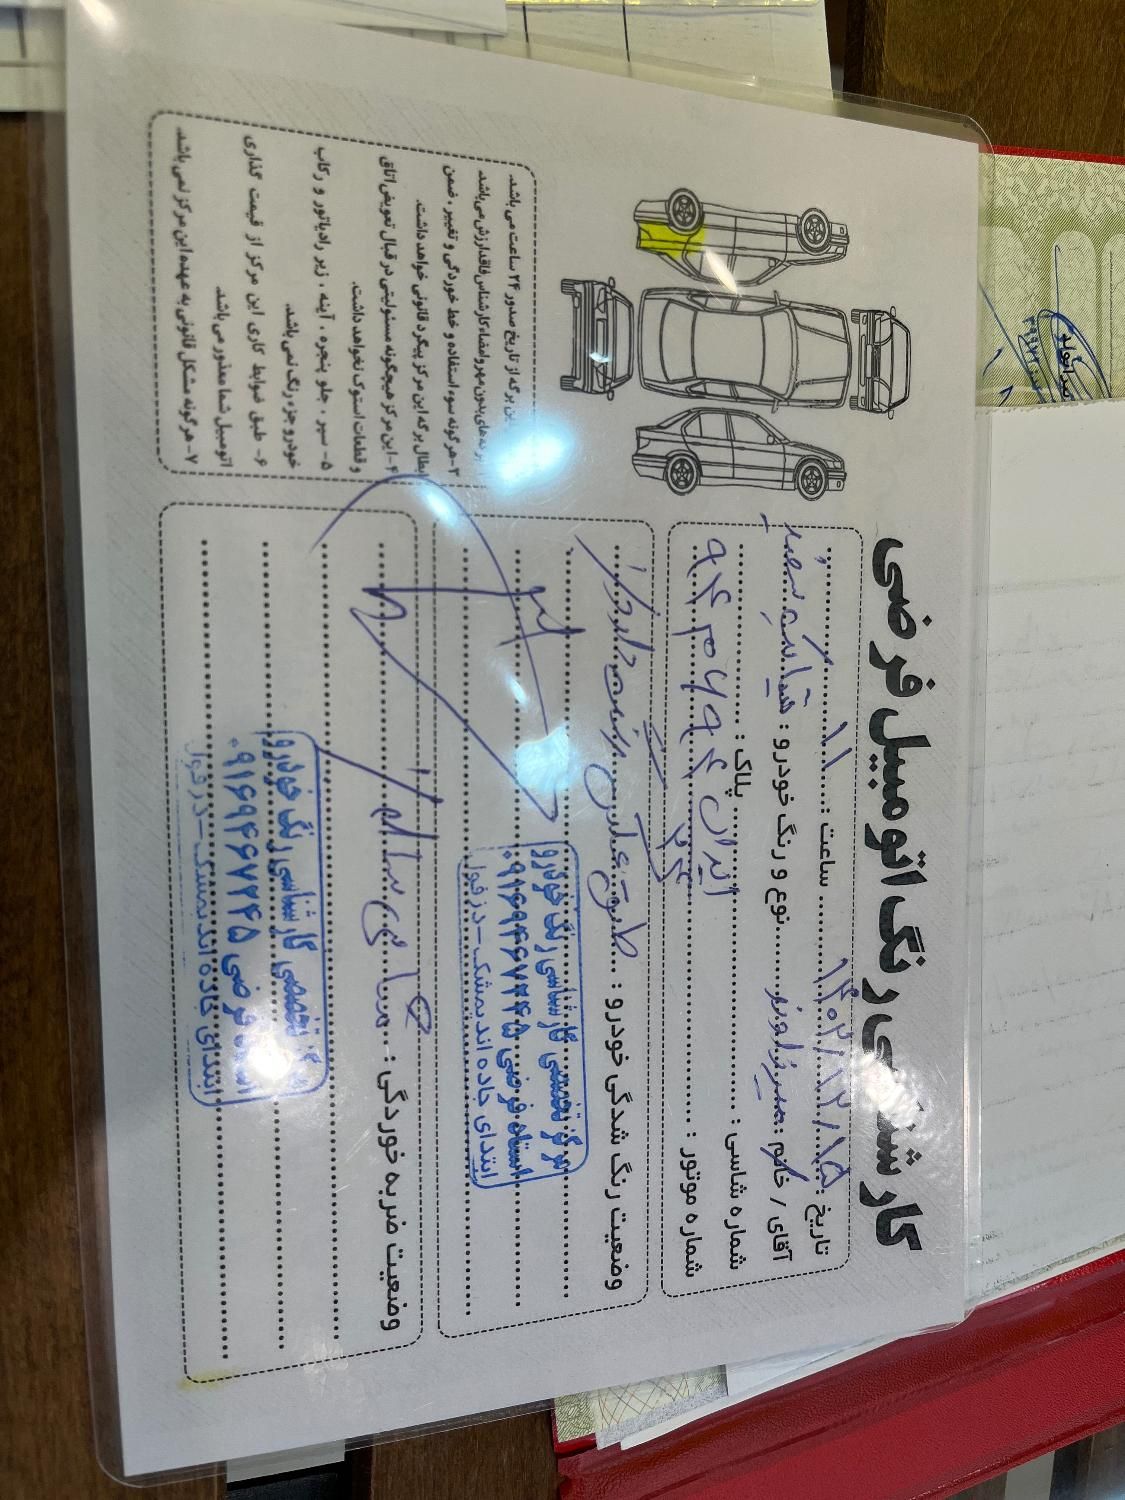 کارشناسی رنگ اتومبیل فرضی
تاریخ : ۱۴۰۲/۱۲/۱۵ ساعت : ۱۱
آقای / خانم : نوع و رنگ خودرو : سفید
شماره شاسی : پلاک :
شماره موتور : ایران ۲۴
وضعیت رنگ شدگی خودرو : طبق عکس
مرکز تخصصی کارشناسی رنگ خودرو
استاد فرضی ۰۹۱۶۹۴۶۷۲۴۵
ابتدای جاده اندیمشک - دزفول
وضعیت ضربه خوردگی : شاسی سالم
مرکز تخصصی کارشناسی رنگ خودرو
استاد فرضی ۰۹۱۶۹۴۶۷۲۴۵
ابتدای جاده اندیمشک - دزفول
این برگه از تاریخ صدور ۲۴ ساعت می باشد.
برگه های بدون مهر و امضاء کارشناس فاقد ارزش می باشد.
۳- هرگونه سوء استفاده و خط خوردگی و تغییر ، ضمن
ابطال برگه این مرکز پیگرد قانونی خواهد داشت.
۴- این مرکز هیچگونه مسئولیتی در قبال تعویض اتاق
و قطعات استوک نخواهد داشت.
۵- سپر ، جلو پنجره ، آینه ، زیر رادیاتور و رکاب
خودرو جزء رنگ نمی باشد.
۶- طبق ضوابط کاری این مرکز از قیمت گذاری
اتومبیل شما معذور می باشد.
۷- هرگونه مشکل قانونی به عهده این مرکز نمی باشد.